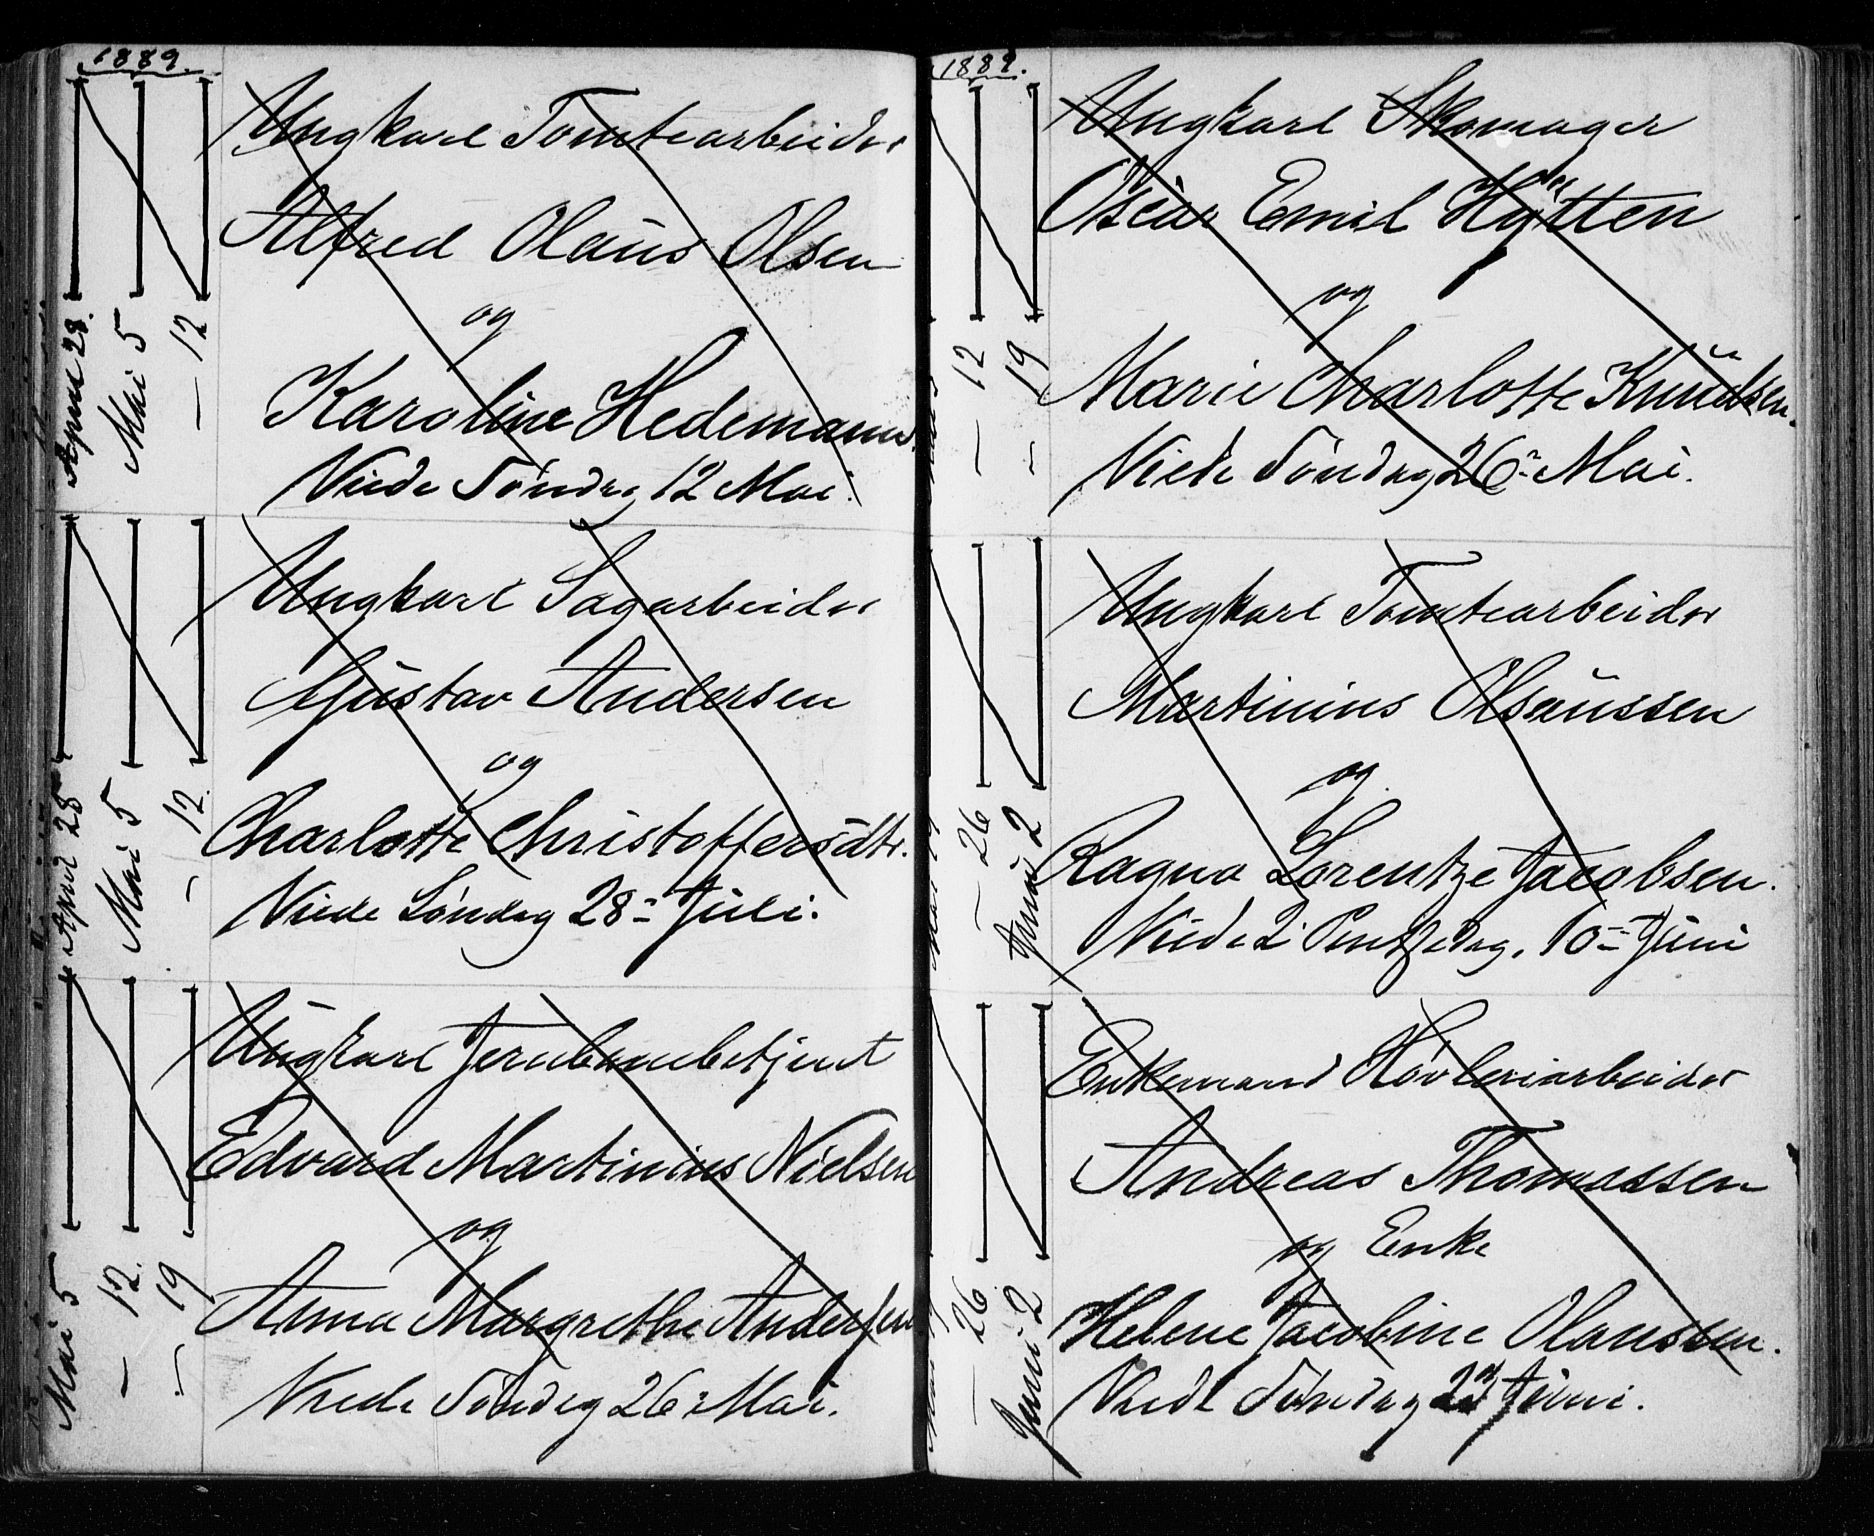 1889.
April 28.
Mai 5
— 12
Ungkarl Tomtearbeider
Alfred Olaus Olsen
og
Karoline Hedemann.
Viede Søndag 12 Mai.
April 28
Mai 5
— 12
Ungkarl Sagarbeider
Gustav Andersen
og
Charlotte Christoffersdtr.
Viede Søndag 28 Juli.
Mai 5
— 12
— 19
Ungkarl Jernbanebetjent
Edvard Martinius Nielsen
og
Anna Margrethe Andersen
Viede Søndag 26 Mai.
1889.
— 12
— 19
Ungkarl Skomager
Oscar Emil Hytten
og
Marie Charlotte Knudsen.
Viede Søndag 26 Mai.
— 26
Juni 2
Ungkarl Tomtearbeider
Martinius Olsaussen
og
Ragna Lorentze Jacobsen.
Viede 2 Pintsedag, 10 Juni
— 26
Juni 2
Enkemand Høvleriarbeider
Andreas Thomassen
og Enke
Helene Jacobine Olaussen.
Viede Søndag Juni.